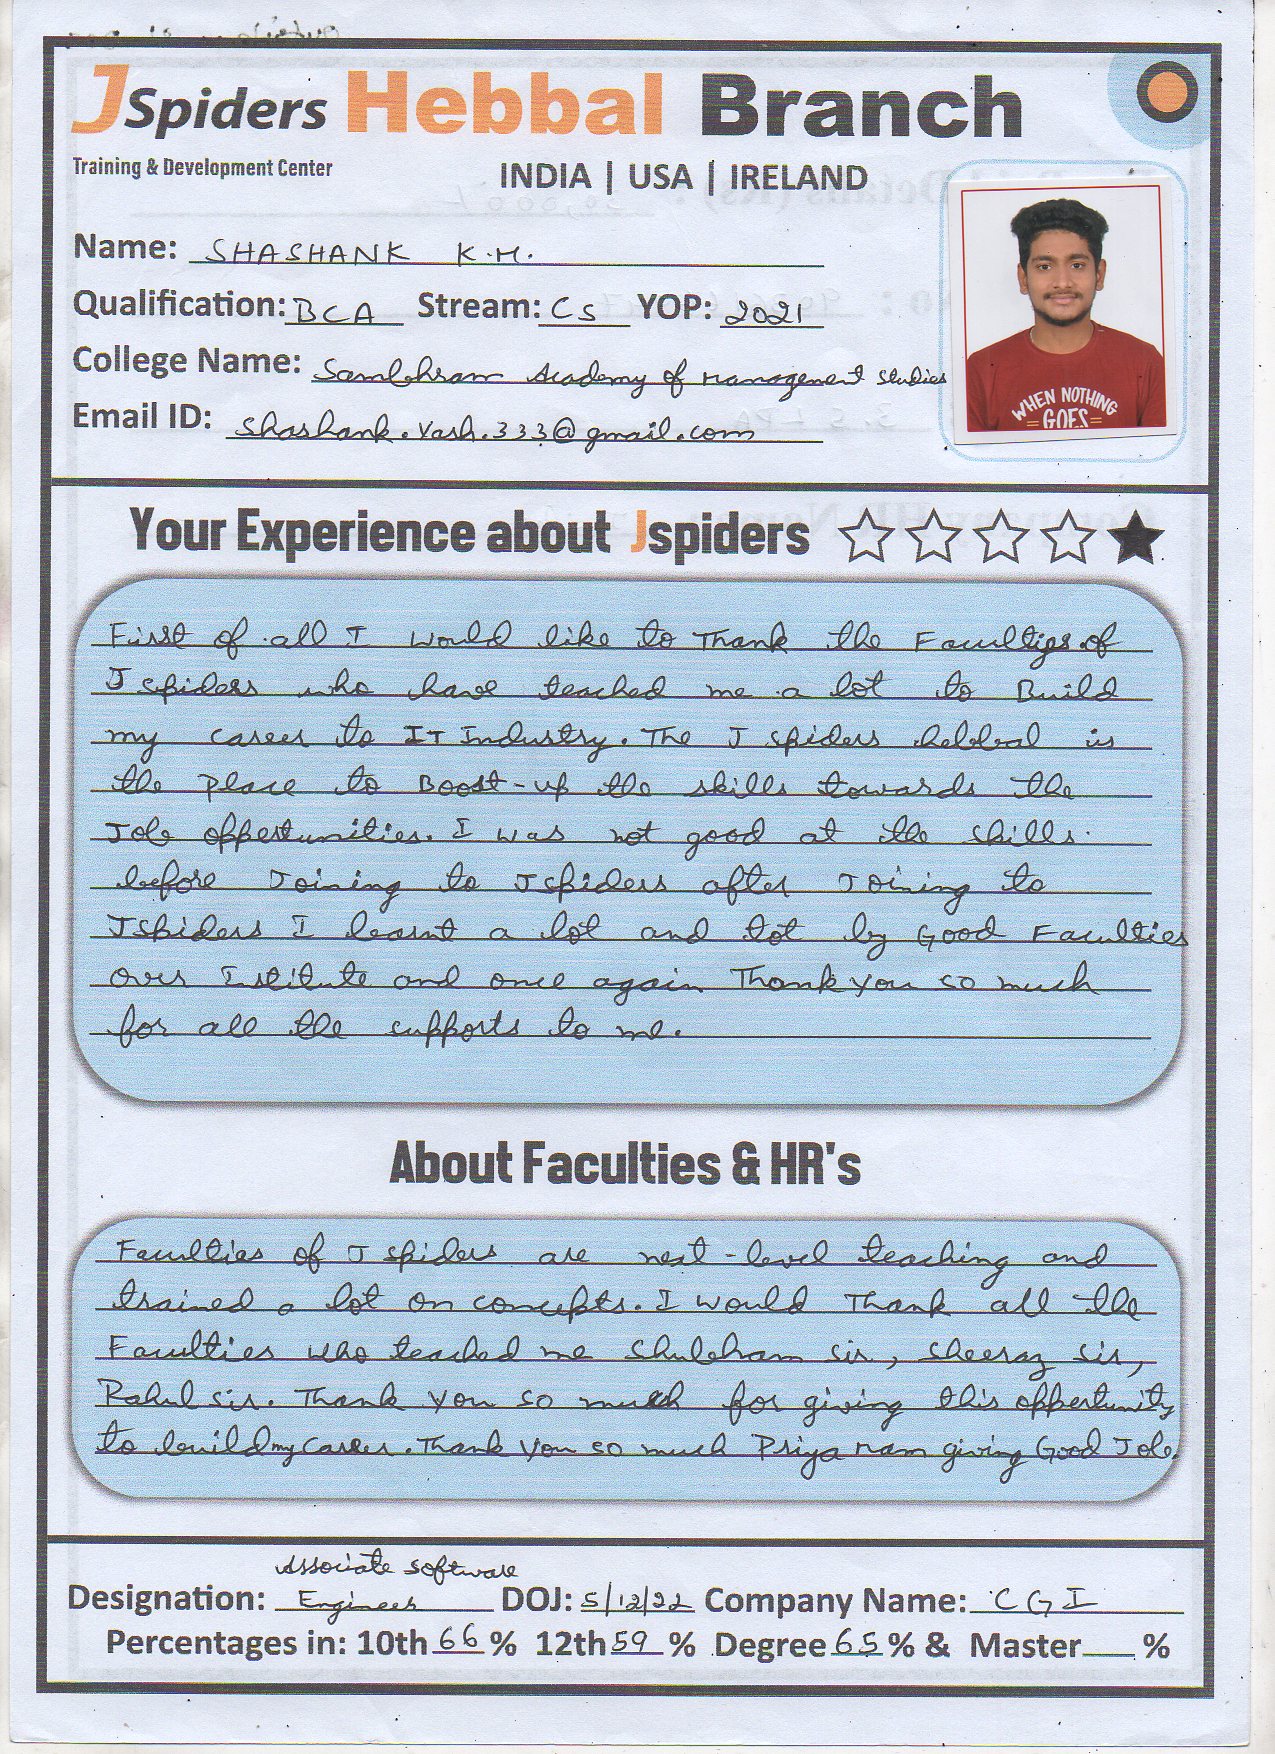 JSpiders Hebbal Branch
Training & Development Center
INDIA | USA | IRELAND
Name: SHASHANK K.M.
Qualification: BCA Stream: CS YOP: 2021
College Name: Sambhram Academy of Management Studies
Email ID: shashank.yash.333@gmail.com
WHEN NOTHING
GOES
Your Experience about Jspiders
First of all I would like to Thank the Faculties of
J spiders who have teached me a lot to Build
my career to IT Industry. The J spiders hebbal is
the place to Boost-up the skills towards the
Job oppertunities. I was not good at the skills
before Joining to Jspiders after Joining to
Jspiders I learnt a lot and lot by Good Faculties
over Institute and once again Thank you so much
for all the supports to me.
About Faculties & HR's
Faculties of J spiders are next-level teaching and
trained a lot on concepts. I would Thank all the
Faculties who teached me Shubham sir, Sheeraz sir,
Rahul sir. Thank you so much for giving this oppertunity
to build my career. Thank you so much Priya mam giving Good Job.
Associate software
Designation: Engineer DOJ: 5/12/22 Company Name: CGI
Percentages in: 10th 66 % 12th 59 % Degree 65 % & Master %